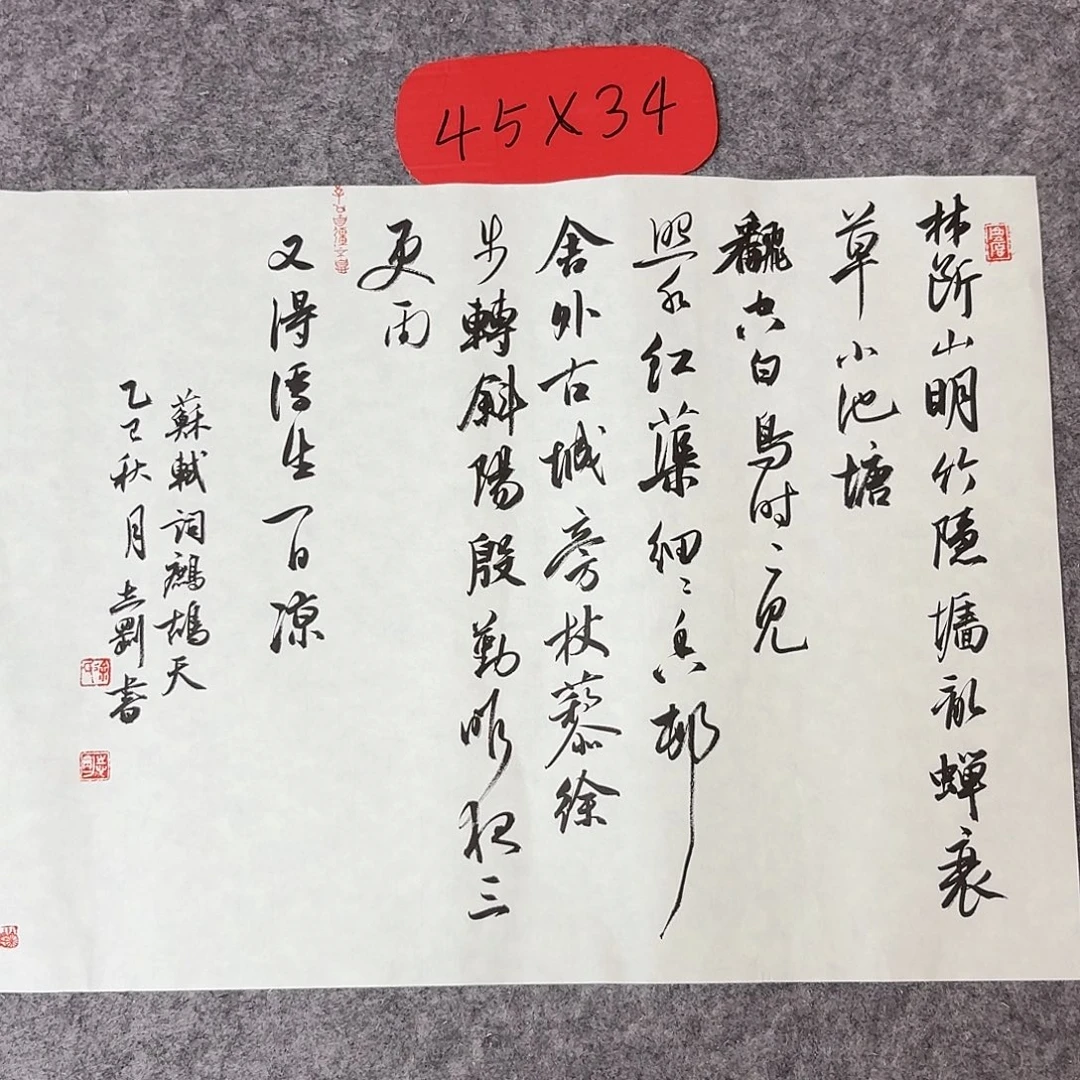 45X34
林断山明竹隱墻亂蟬衰
草小池塘
翻空白鳥时々見
照水红蕖细々香邨
舍外古城旁杖藜徐
步轉斜陽殷勤昨夜三
更雨
又得浮生一日凉
蘇軾词鷓鴣天
乙巳秋月志剛書